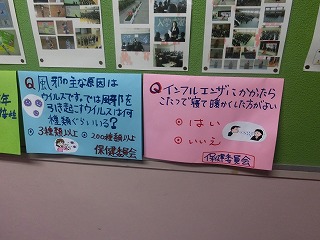 年
Q 風邪の主な原因は
ウイルスです。では風邪を
引き起こすウイルスは何
種類ぐらいいる?
3種類以上 200種類以上
保健委員会
Q インフルエンザにかかったら
こたつで寝て暖かくした方がよい
はい
いいえ
保健委員会